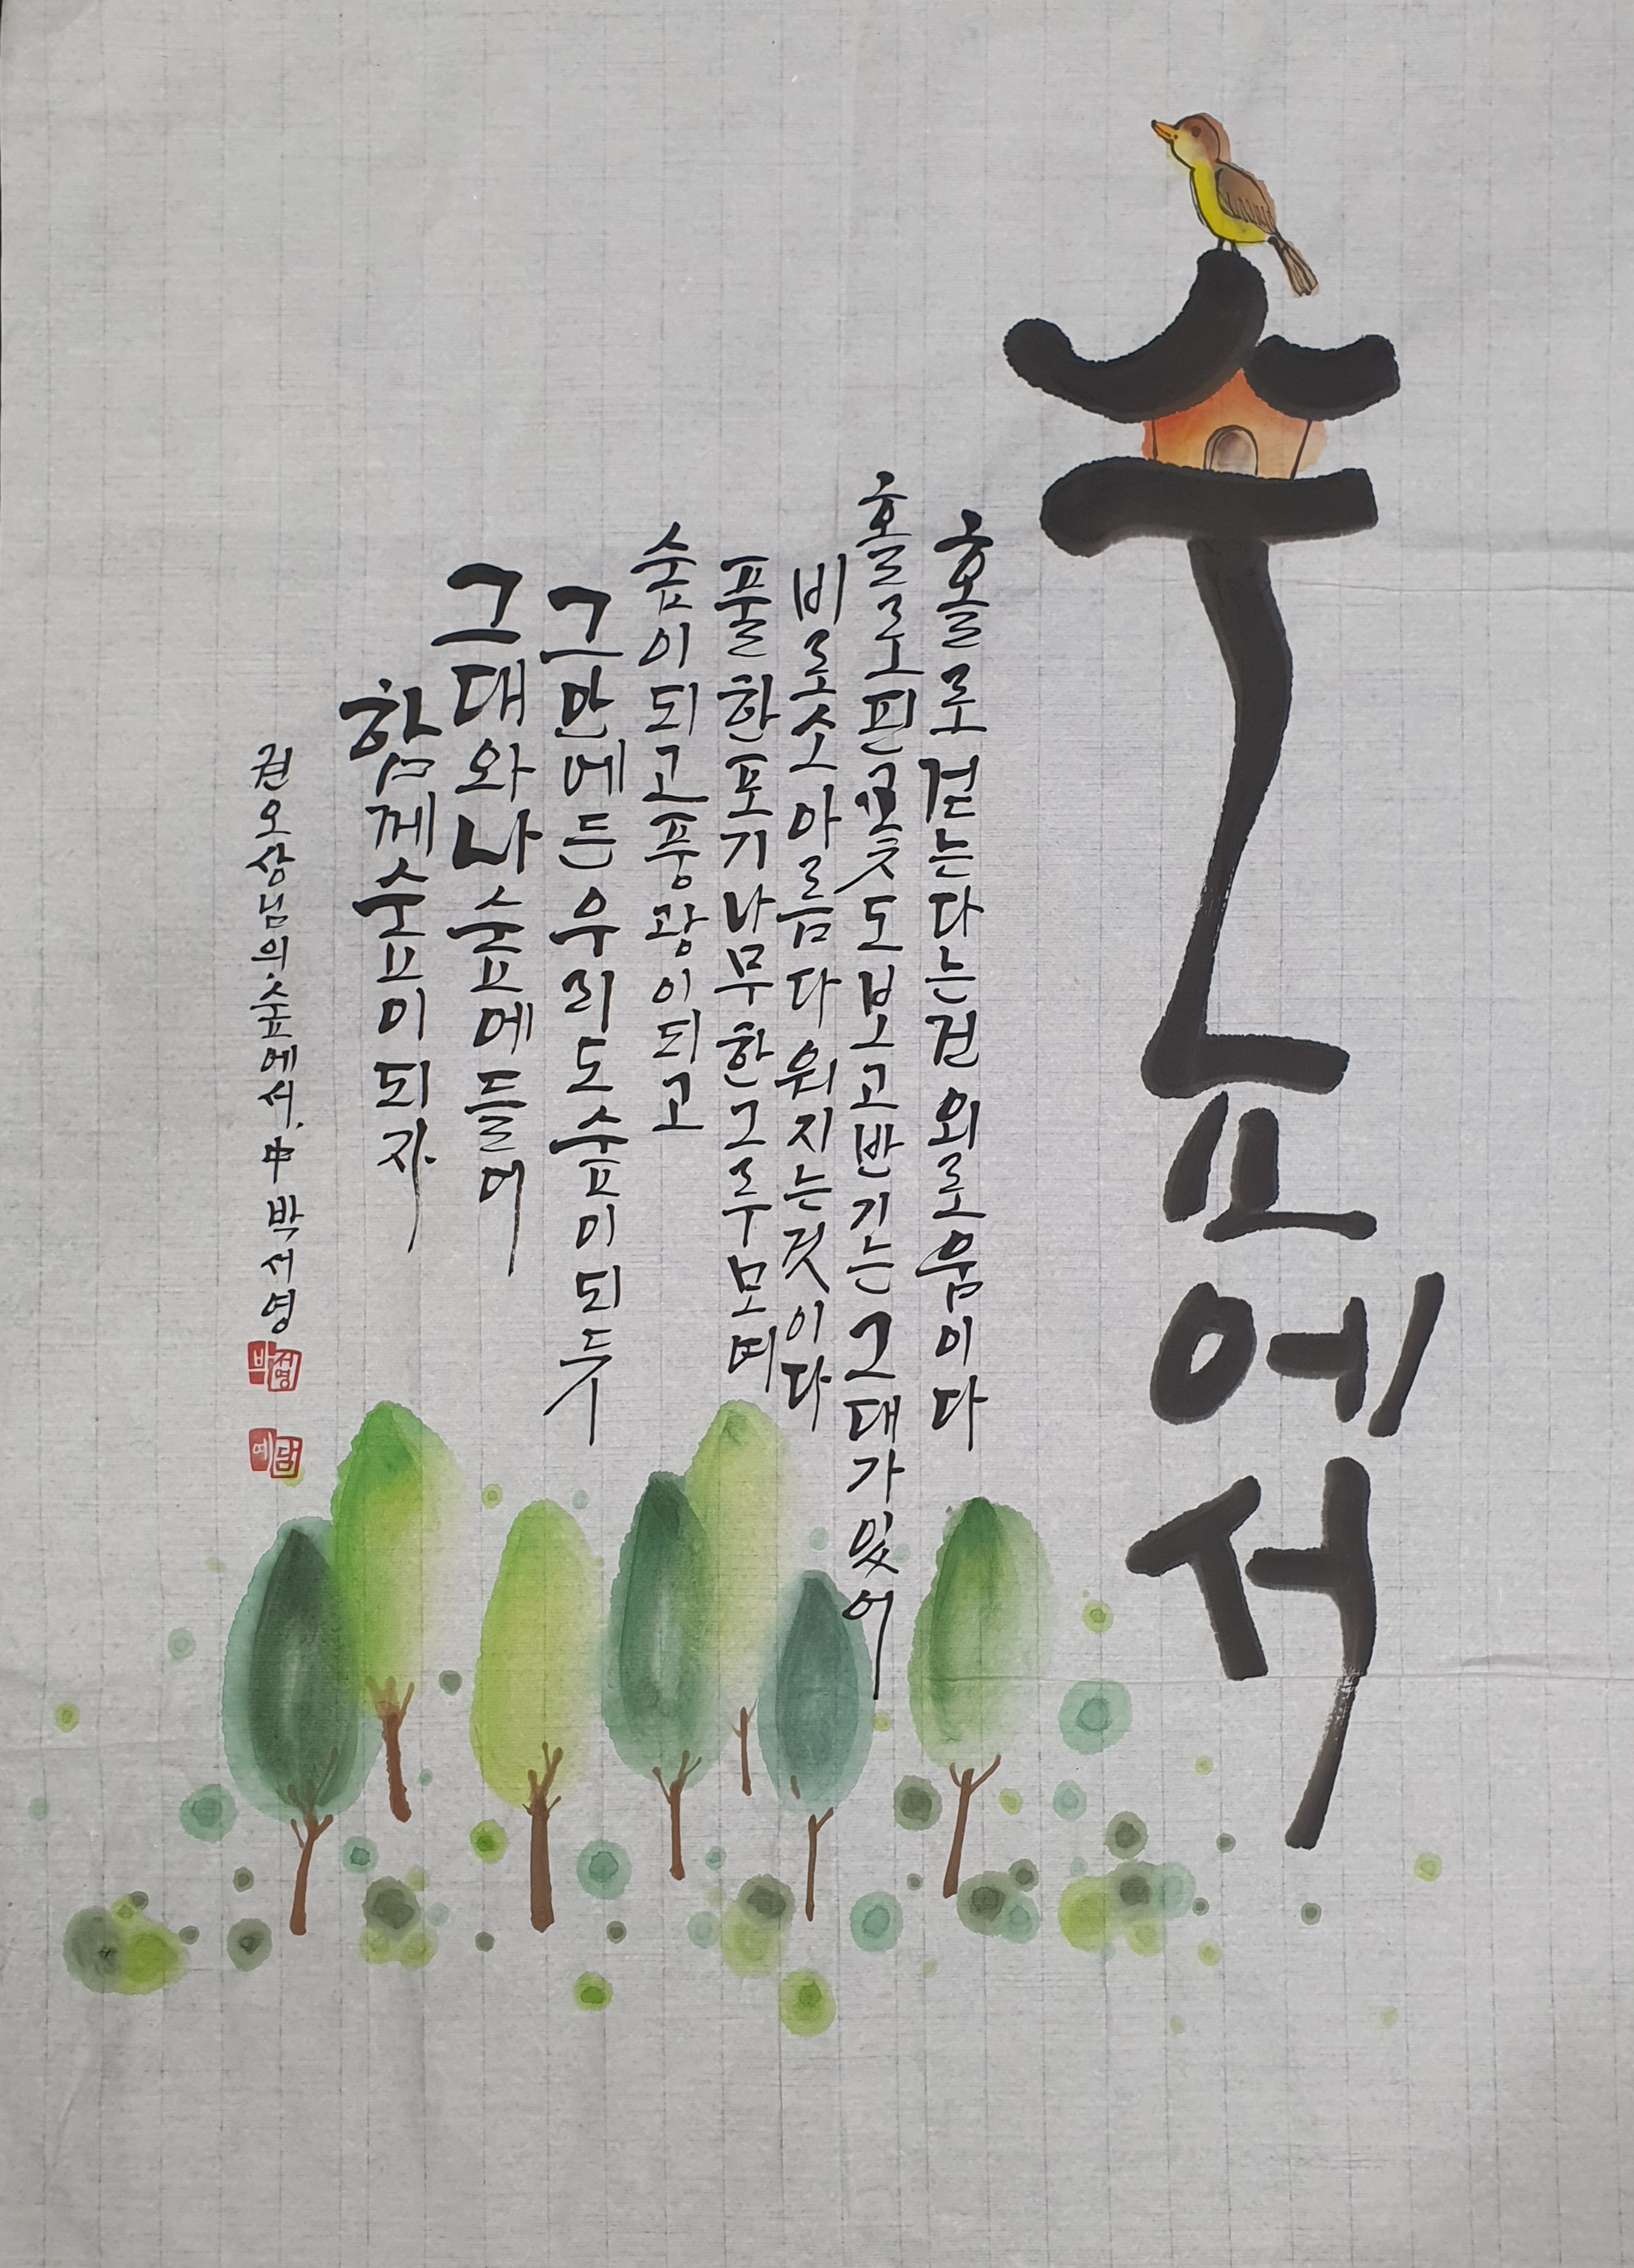 숲에서
홀로 걷는다는 건 외로움이다
홀로 핀 꽃도 보고 반기는 그대가 있어
비로소 아름다워지는 것이다
풀 한 포기 나무 한 그루 모여
숲이 되고 풍광이 되고
그 안에 든 우리도 숲이 되듯
그대와 나 숲에 들어
함께 숲이 되자
권오상님의 숲에서. 中 박서영
박서영
예담